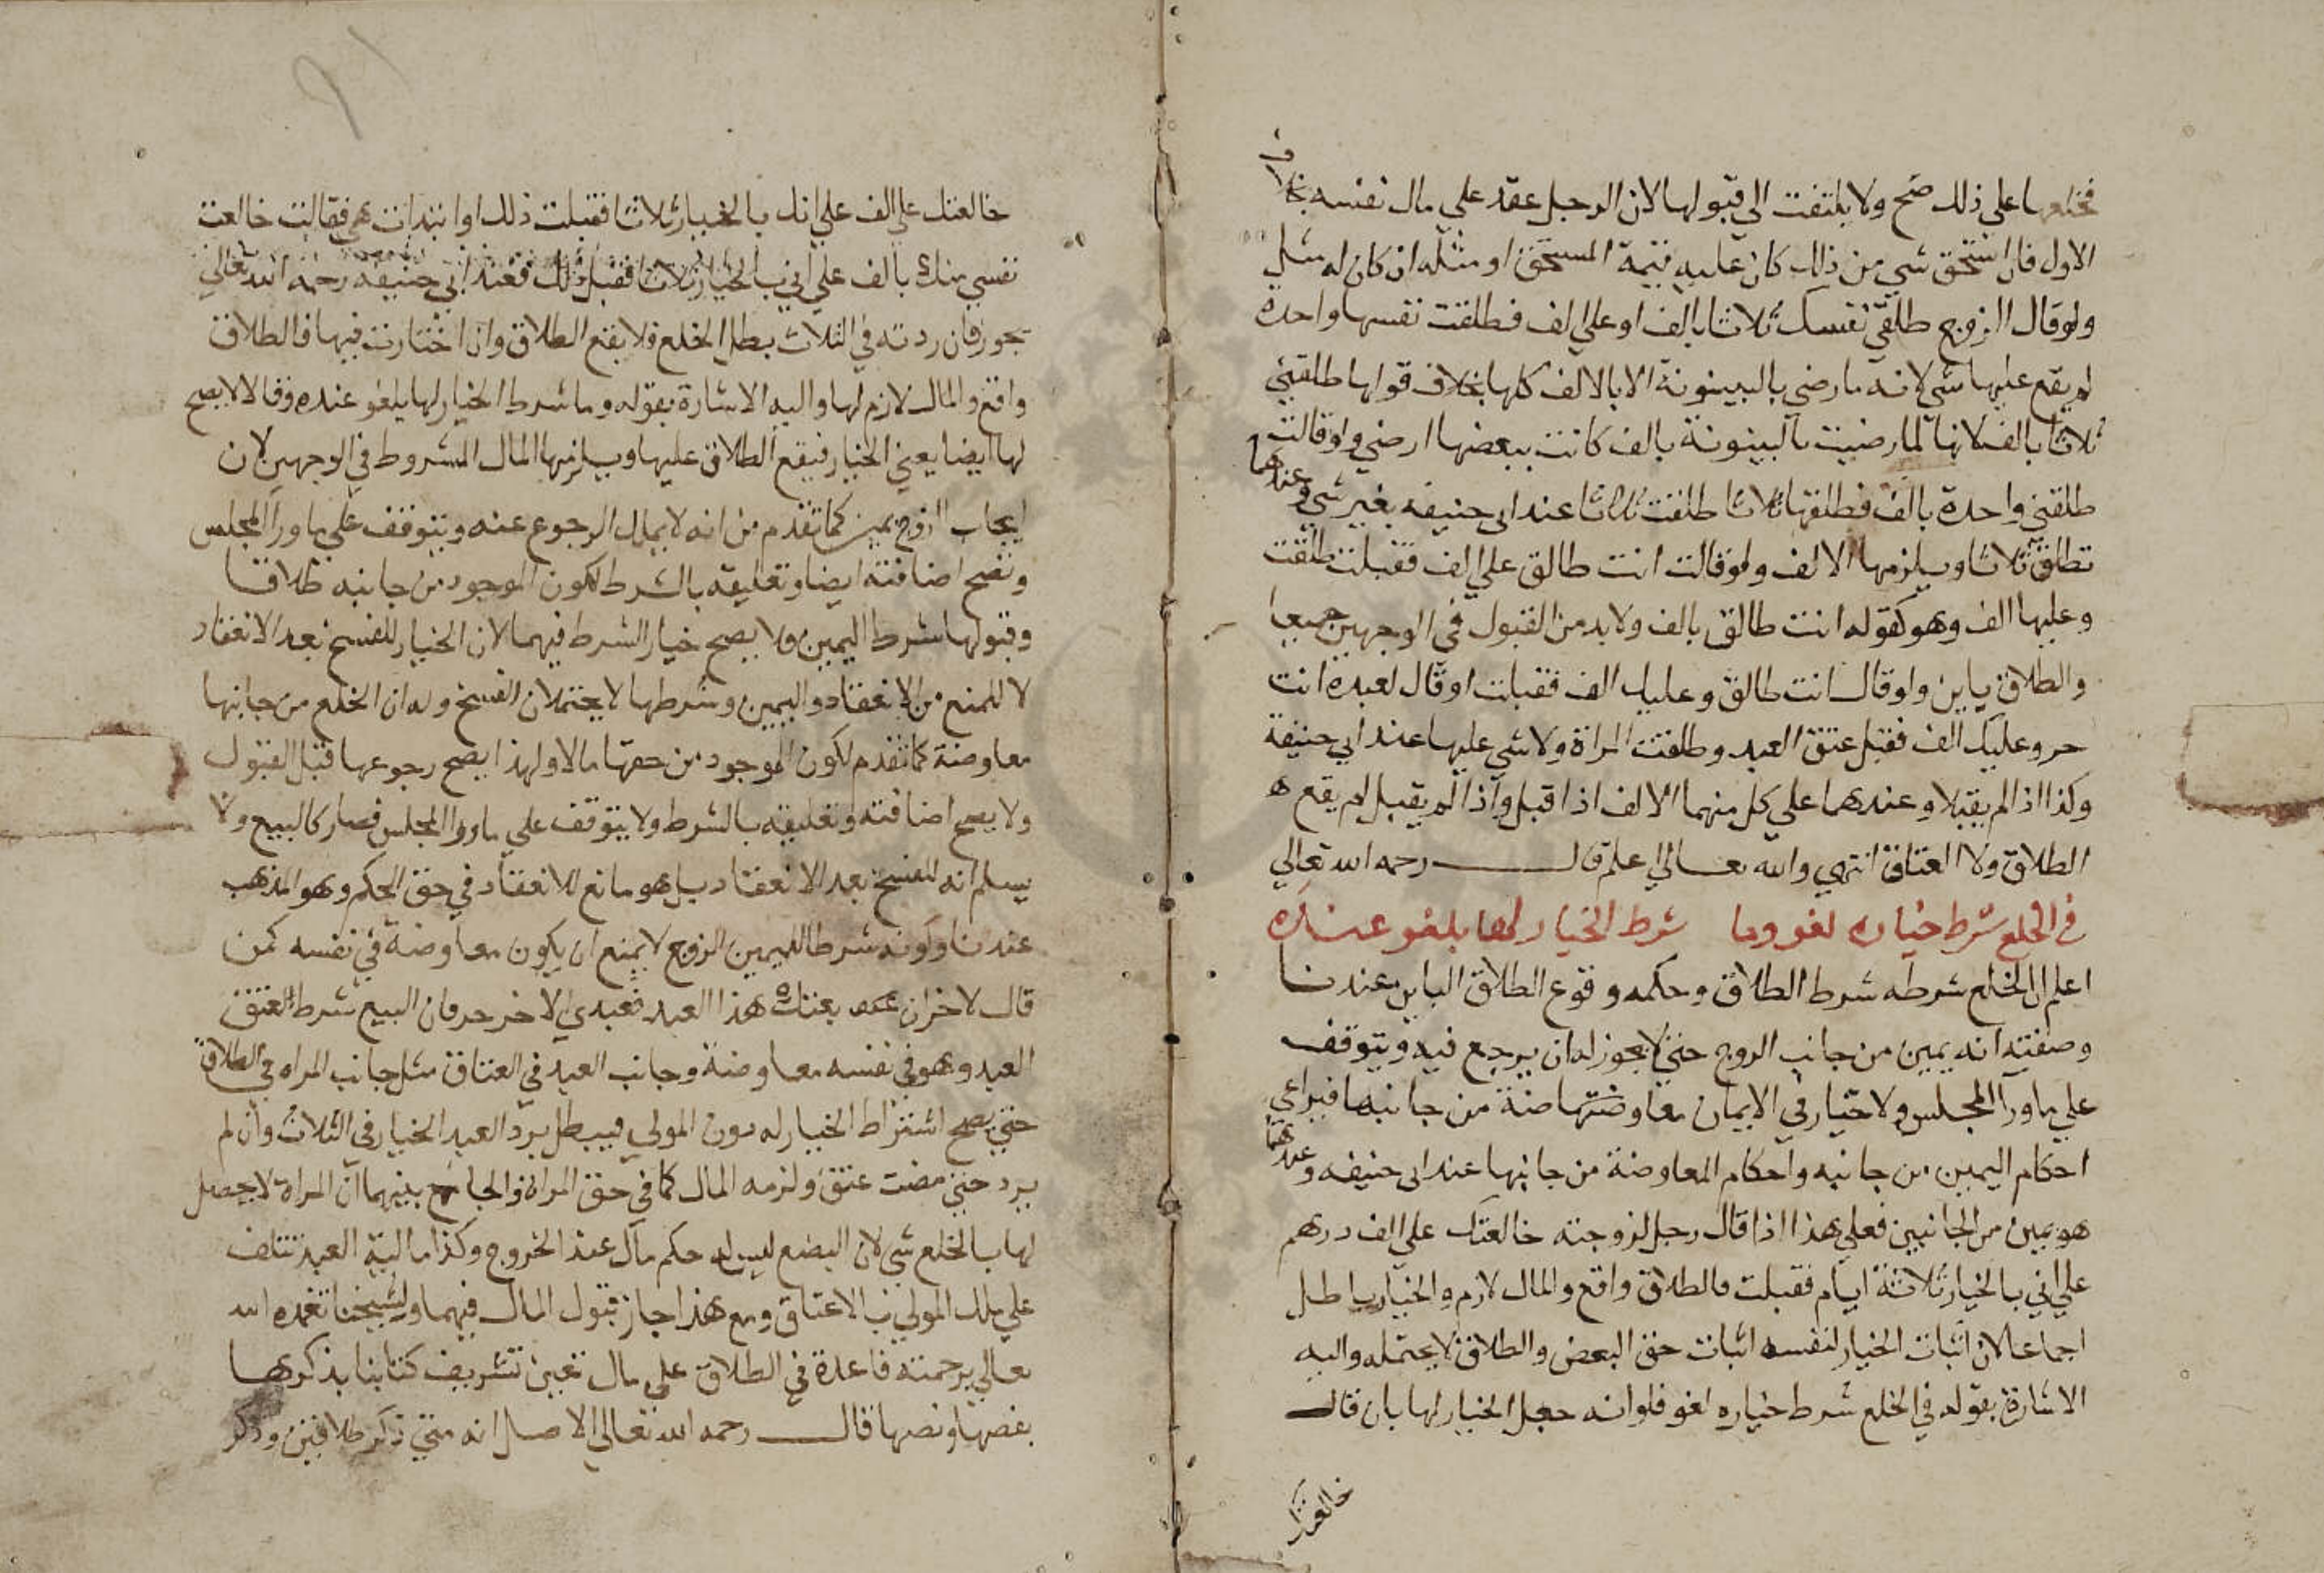 فخلعها على ذلك صح ولا يلتفت الي قبولها لان الرجل عقد علي مال نفسه بخلاف
الاول فان استحق شي من ذلك كان عليه قيمة المستحق او مثله ان كان له مثل
ولو قال الزوج طلقي نفسك ثلاثا بالف او علي الف فطلقت نفسها واحدة
لم يقع عليها شي لانه ما رضي بالبينونة الا بالالف كلها بخلاف قولها طلقني
ثلاثا بالف لانها لما رضيت بالبينونة بالف كانت ببعضها ارضي ولو قالت
طلقني واحدة بالف فطلقها ثلاثا طلقت ثلاثا عند ابي حنيفه بغير شي وعندهما
تطلق ثلاثا ويلزمها الالف ولو قالت انت طالق علي الف فقبلت طلقت
وعليها الف وهو كقوله انت طالق بالف ولا بد من القبول في الوجهين جميعا
والطلاق باين ولو قال انت طالق وعليك الف فقبلت او قال لعبده انت
حر وعليك الف فقبل عتق العبد وطلقت المراة ولا شي عليها عند ابي حنيفة
وكذا اذا لم يقبلا وعندهما علي كل منهما الالف اذا قبل واذا لم يقبل لم يقع
الطلاق ولا العتاق انتهي والله تعالي اعلم قال رحمه الله تعالي
في الخلع شرط خياره لغو وما شرط الخيار لها بلغو عنده
اعلم ان الخلع شرطه شرط الطلاق وحكمه وقوع الطلاق الباين عندنا
وصفته انه يمين من جانب الزوج حتي لا يجوز له ان يرجع فيه ويتوقف
علي ماورآ المجلس ولا خيار في الايمان معاوضتها ضة من جانبها فيراعي
احكام اليمين من جانبه واحكام المعاوضة من جانبها عند ابي حنيفه وعندهما
هو يمين من الجانبين فعلي هذا اذا قال رجل لزوجته خالعتك علي الف درهم
علي اني بالخيار ثلاثة ايام فقبلت فالطلاق واقع والمال لازم والخيار باطل
اجماعا لان اثبات الخيار لنفسه اثبات حق البعض والطلاق لا يحتمله واليه
الاشارة بقوله في الخلع شرط خياره لغو فلو انه جعل الخيار لها بان قال
خالعتك
خالعتك علي الف علي انك بالخيار ثلاثا فقبلت ذلك او ابتدات هي فقالت خالعت
نفسي منك بالف علي اني بالخيار ثلاثا فقبل ذلك فعند ابي حنيفه رحمه الله تعالي
يجوز فان ردته في الثلاث بطل الخلع فلا يقع الطلاق وان اختارت فيها فالطلاق
واقع والمال لازم لها واليه الاشارة بقوله وما شرط الخيار لها يلغو عنده وقالا لا يصح
لها ايضا يعني الخيار فيقع الطلاق عليها ويلزمها المال المشروط في الوجهين لان
ايجاب الزوج يمين كما تقدم من انه لا يملك الرجوع عنه ويتوقف علي ماورآ المجلس
وتصح اضافته ايضا وتعليقه بالشرط لكون الموجود من جانبه طلاقا
وقبولها شرط اليمين ولا يصح خيار الشرط فيهما لان الخيار للفسخ بعد الانعقاد
لا للمنع من الانعقاد واليمين وشرطها لا يحتملان الفسخ وله ان الخلع من جانبها
معاوضة كما تقدم لكون الموجود من حقها مالا ولهذا يصح رجوعها قبل القبول
ولا يصح اضافته وتعليقه بالشرط ولا يتوقف علي ماورا المجلس فصار كالبيع ولا
يسلم انه للفسخ بعد الانعقاد بل هو مانع للانعقاد في حق الحكم وهو المذهب
عندنا وكونه شرطا لليمين الزوج لا يمنع ان يكون معاوضة في نفسه كمن
قال لاخر ان بعتك هذا العبد فعبدي الاخر حر فان البيع شرط لعتق
العبد وهو في نفسه معاوضة وجانب العبد في العتاق مثل جانب المراه في الطلاق
حتي يصح اشتراط الخيار له دون المولي فيبطل برد العبد الخيار في الثلاث وان لم
يرد حتي مضت عتق ولزمه المال كما في حق المراة والجامع بينهما ان المراة لا يحصل
لها بالخلع شي لان البضع ليس له حكم مال عند الخروج وكذا مالية العبد تتلف
علي ملك المولي في الاعتاق ومع هذا جاز قبول المال فيهما ولشيخنا تغمده الله
تعالي برحمته قاعدة في الطلاق علي مال تعين تشريف كتابنا بذكرها
بفصها ونصها قال رحمه الله تعالي الاصل انه متي ذكر طلاقين وذكر